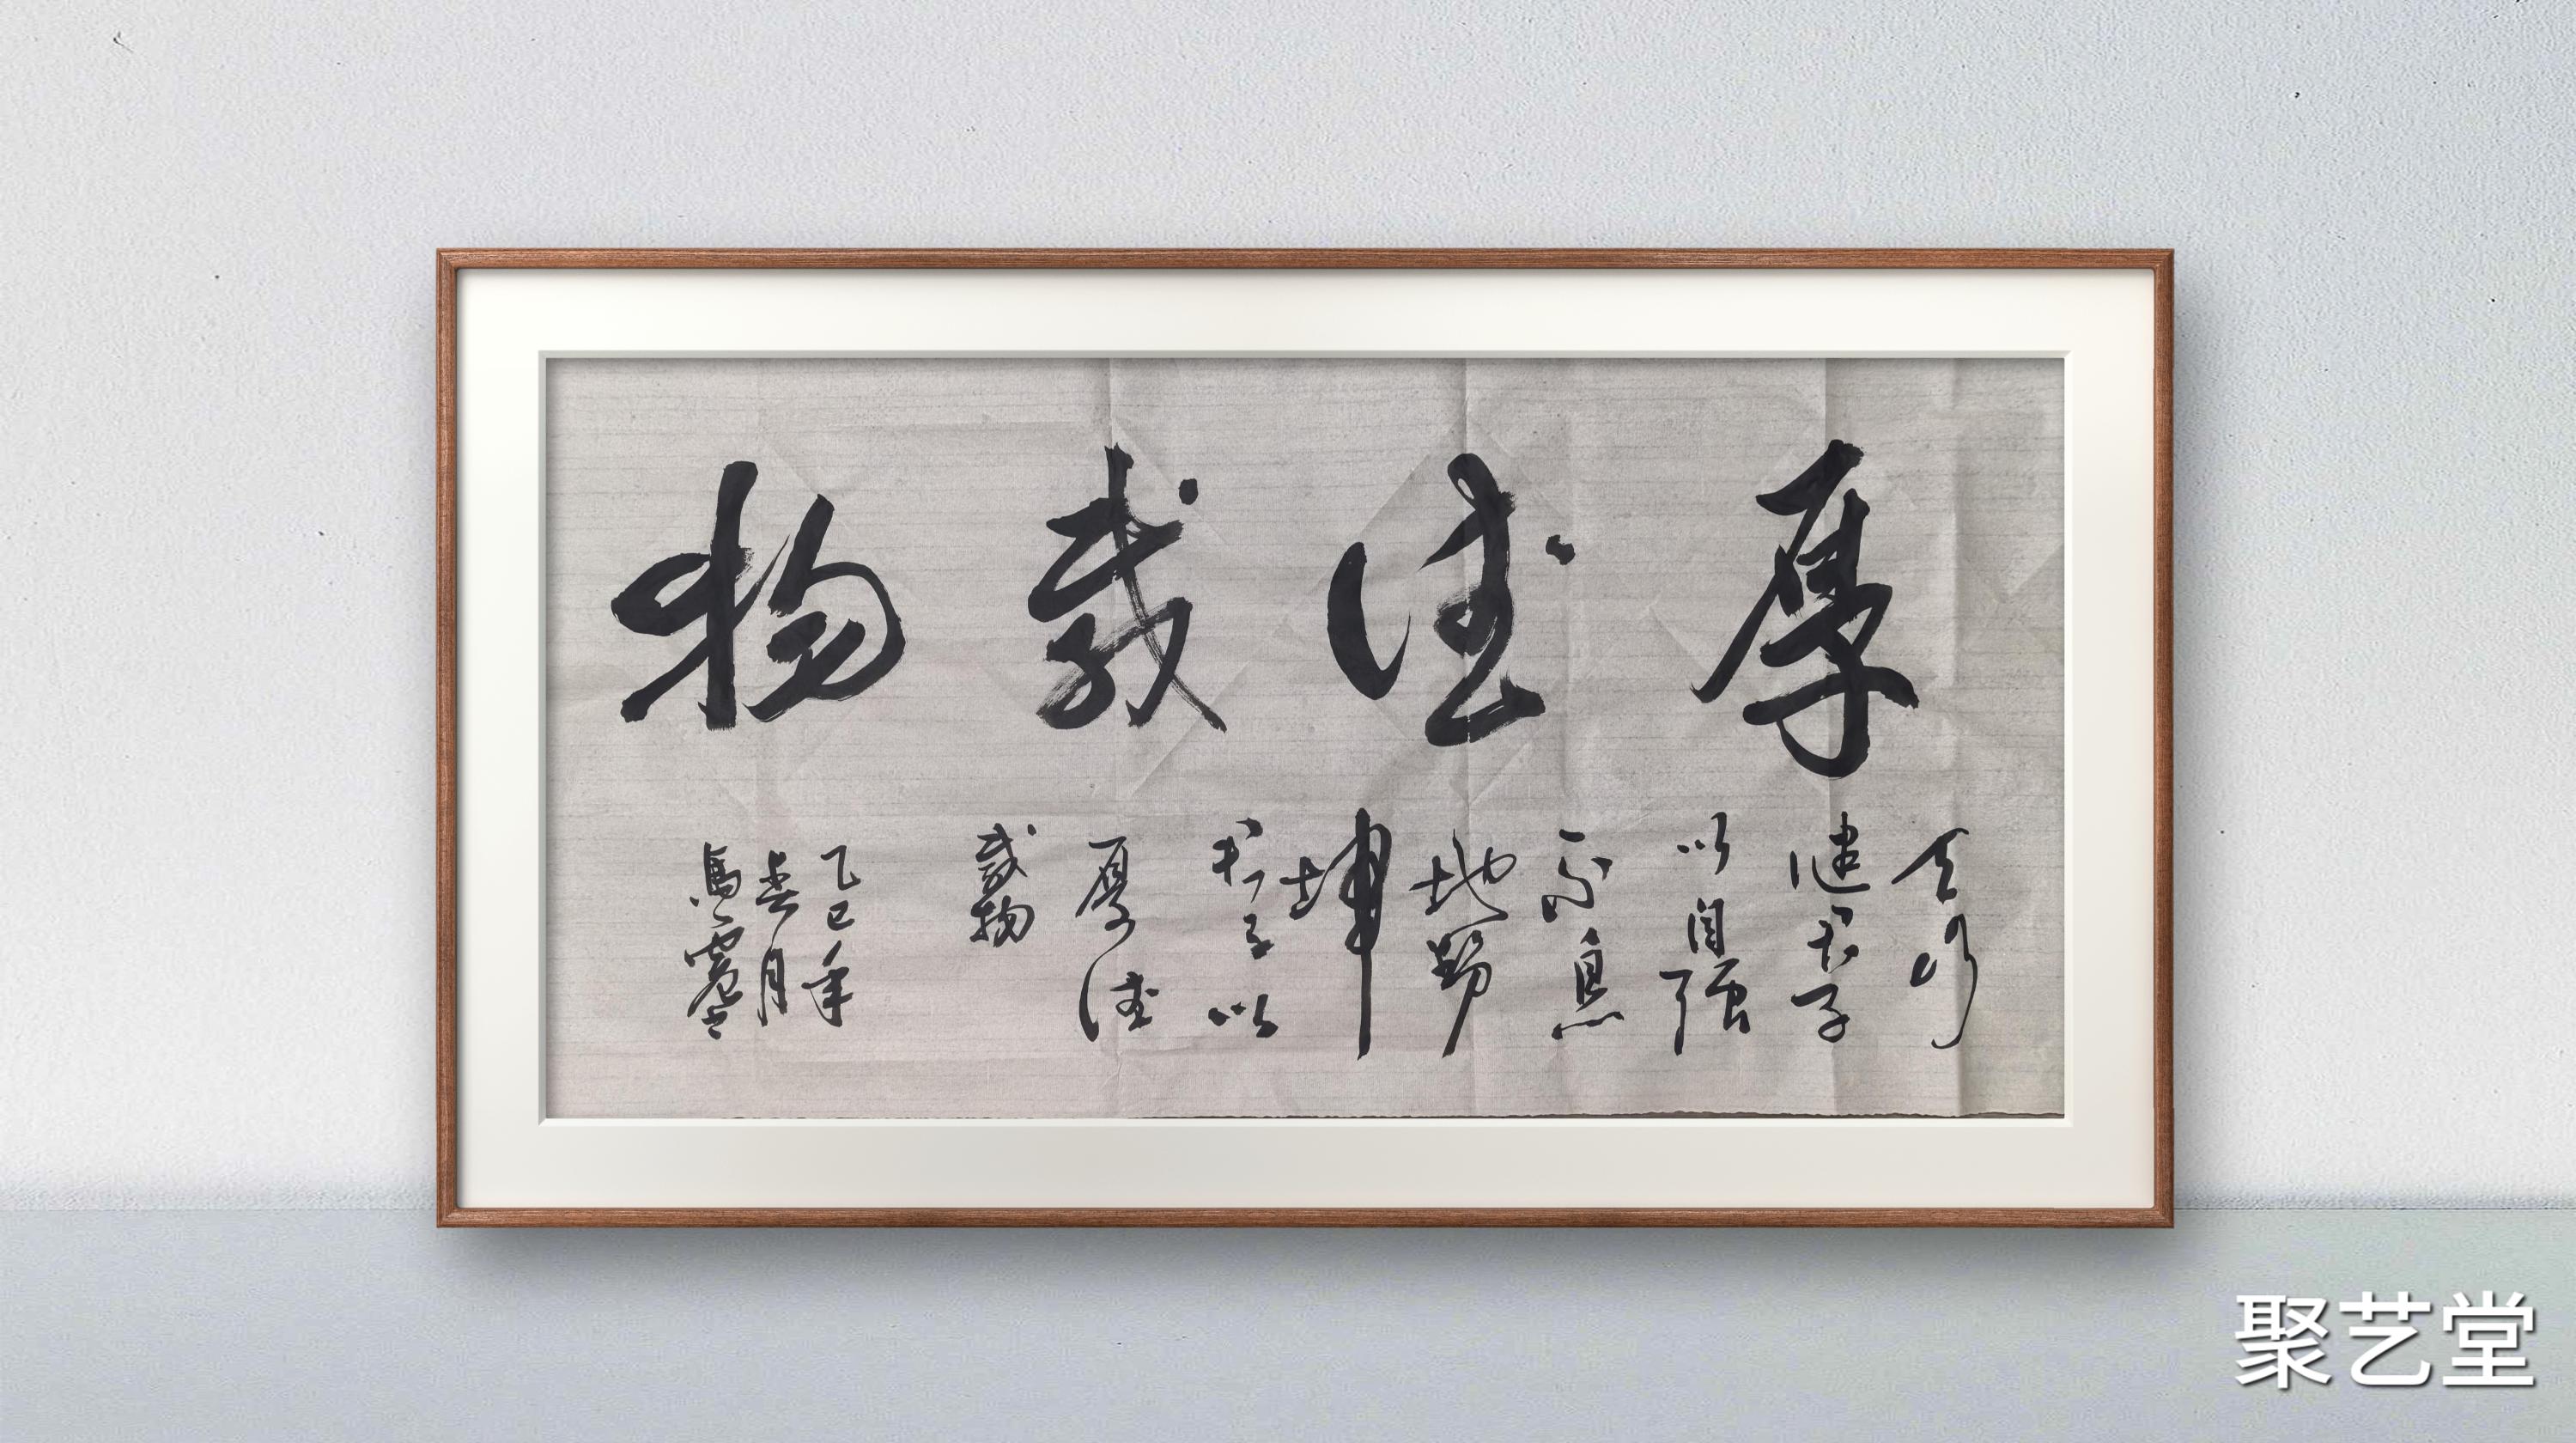 厚德载物
天行
健君子
以自强
不息
地势
坤
君子以
厚德
载物
乙巳年
春月
馬
聚艺堂